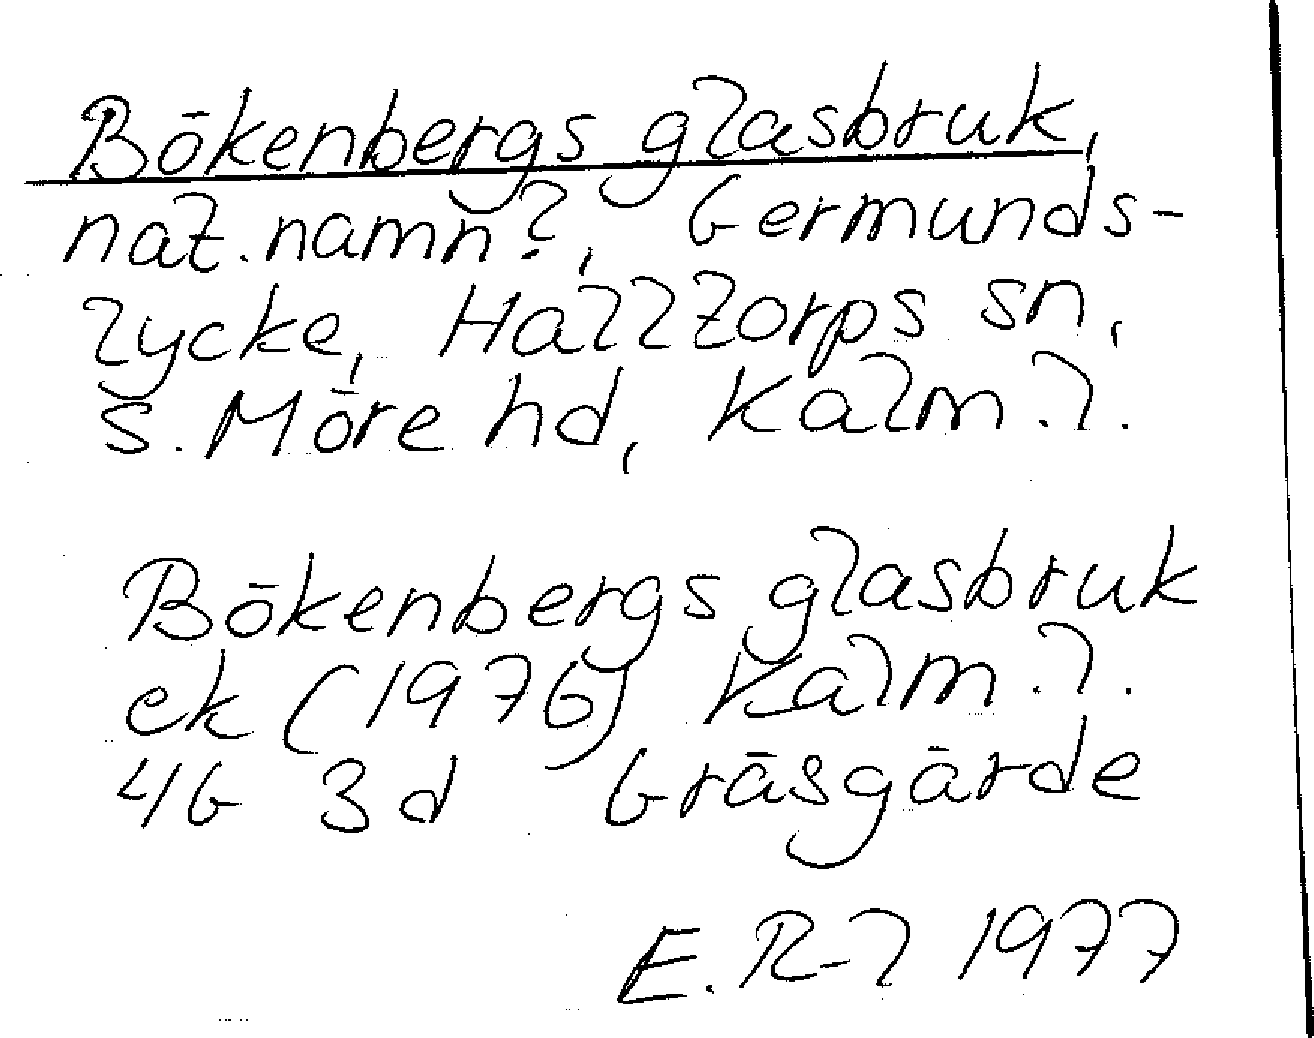 Bökenbergs glasbruk,
nat.namn?, Germunds-
lycke, Halltorps sn,
S. Möre hd, Kalm.l.
Bökenbergs glasbruk
ek (1976) Kalm.l.
4G 3d Gräsgärde
E.R-l 1977